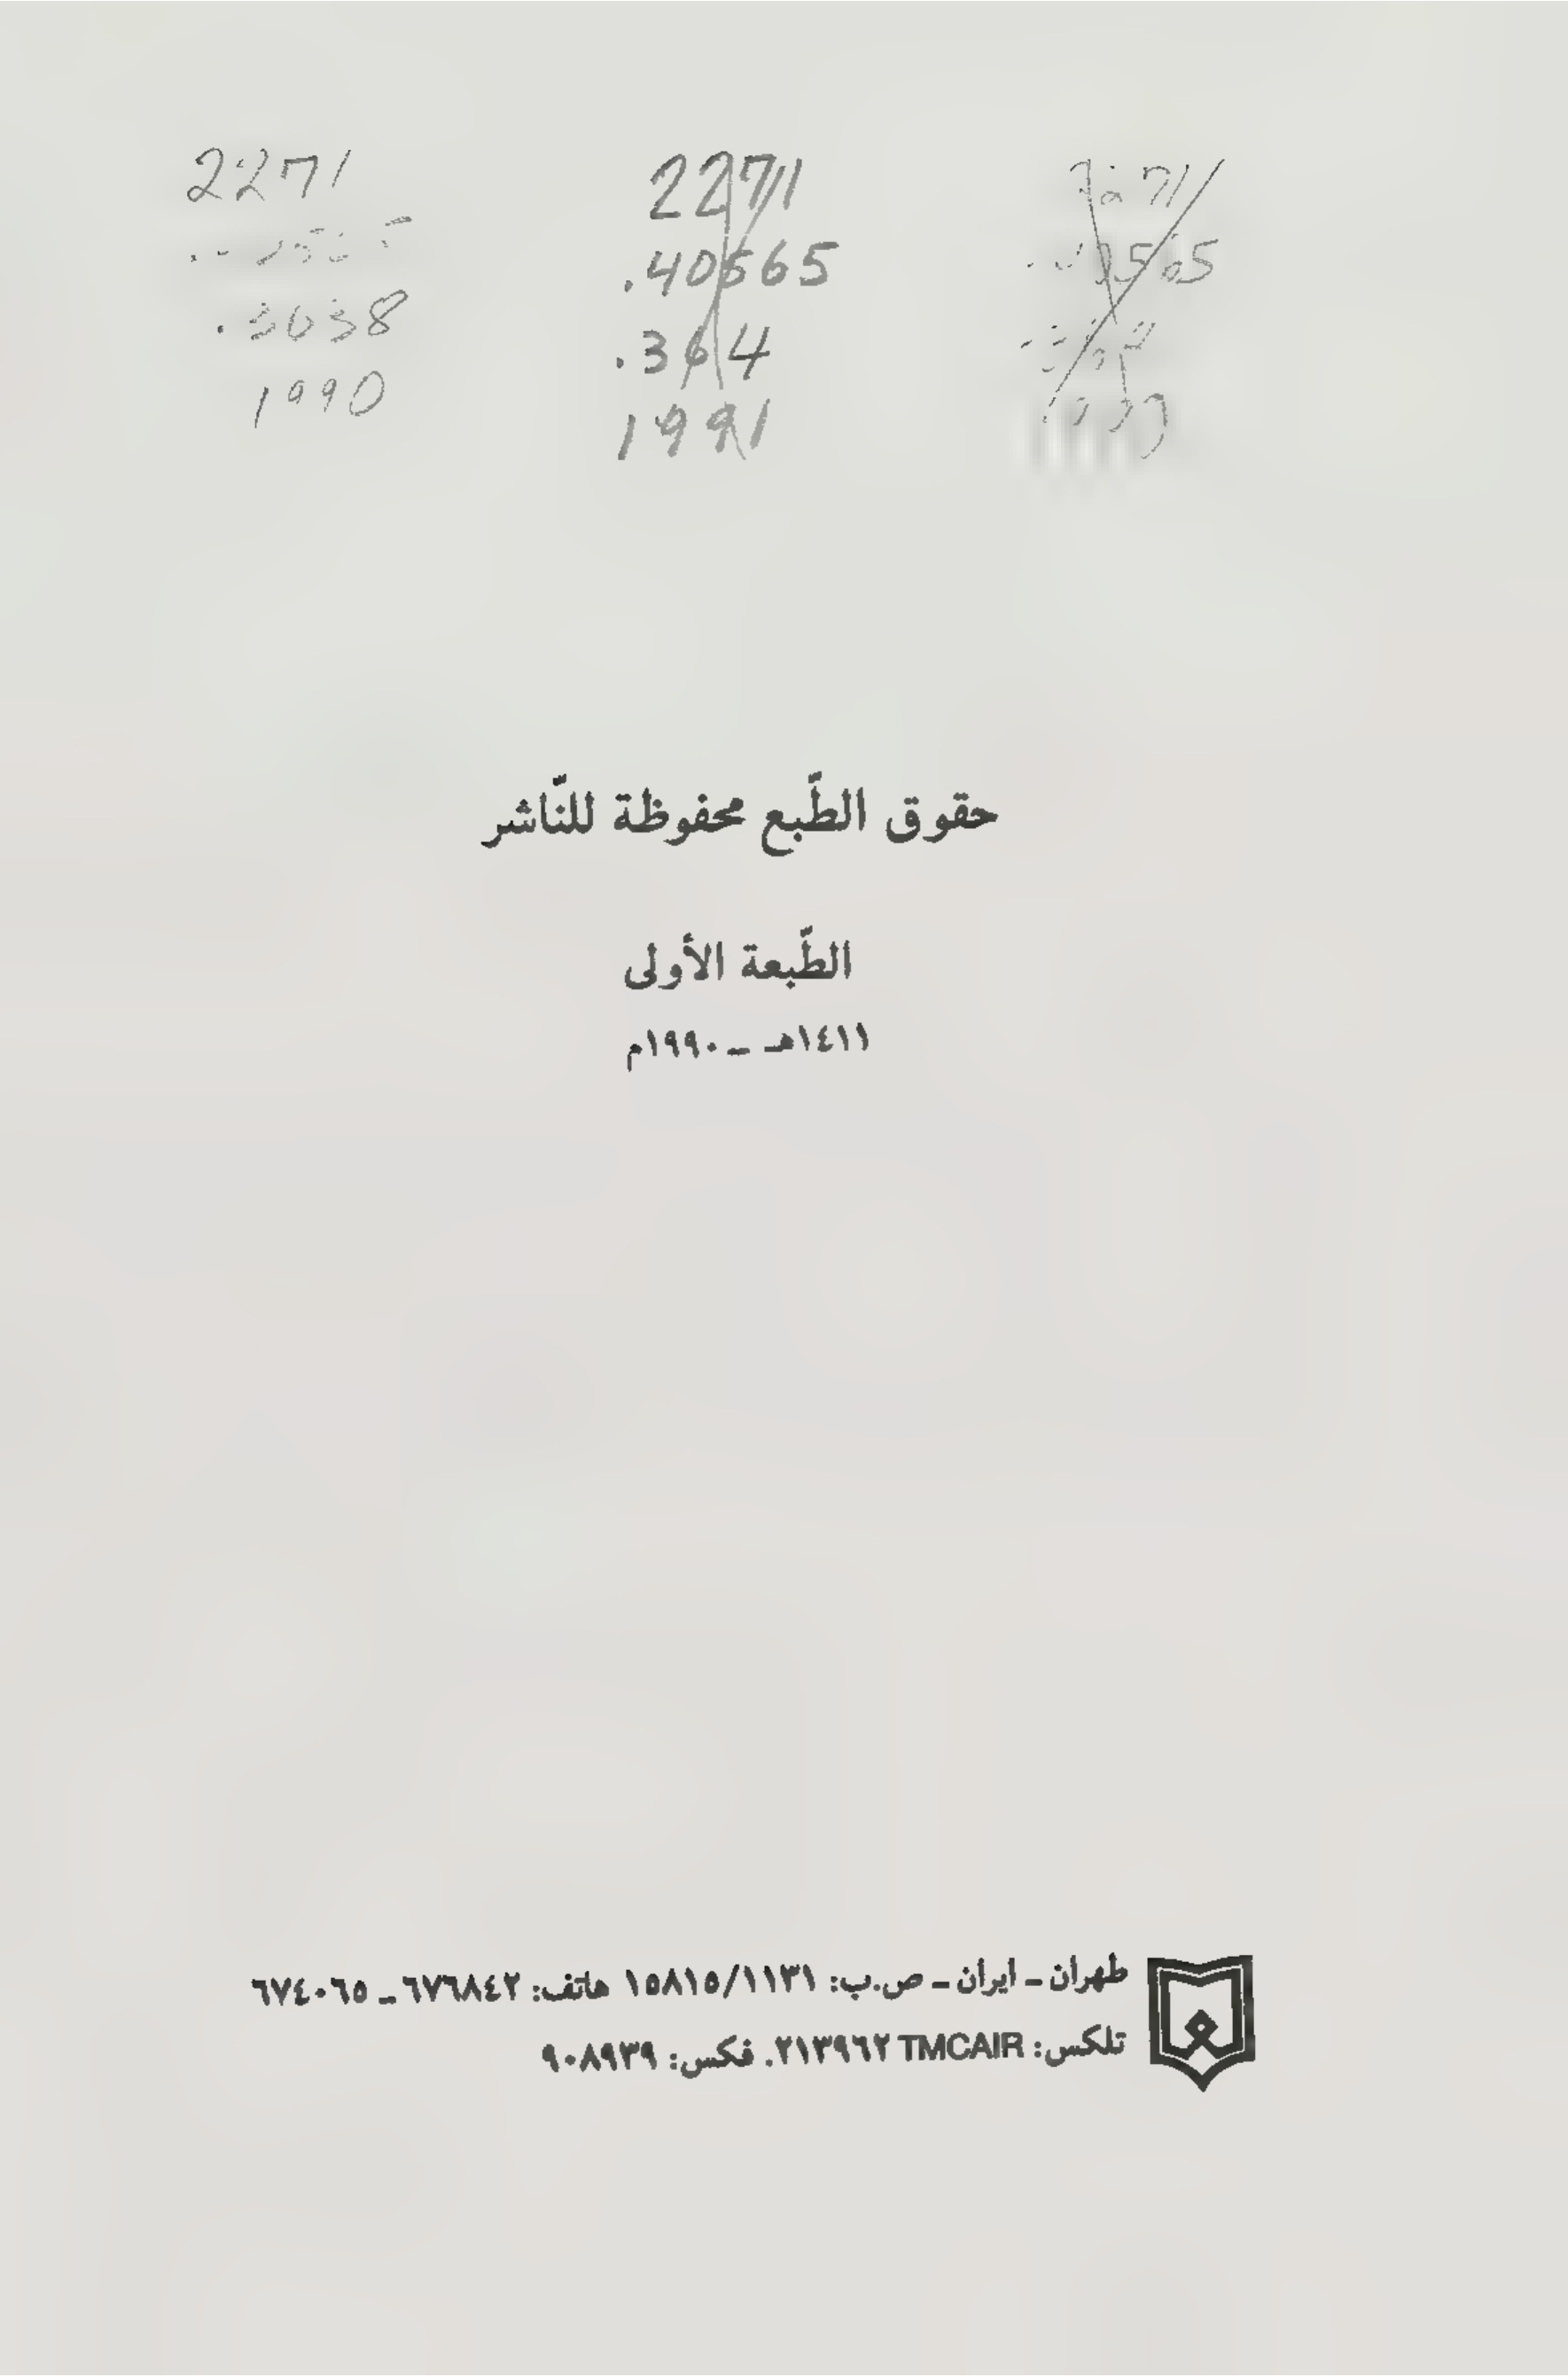 2271
.3638
1990
2271
.40565
.364
1991
حقوق الطّبع محفوظة للنّاشر
الطّبعة الأولى
١٤١١هـ ــ ١٩٩٠م
طهران ـ ايران ـ ص.ب: ١٥٨١٥/١١٣١ هاتف: ٦٧٦٨٤٢ ـ ٦٧٤٠٦٥
تلكس: ٢١٣٩٦٢ TMCAIR. فكس: ٩٠٨٩٣٩